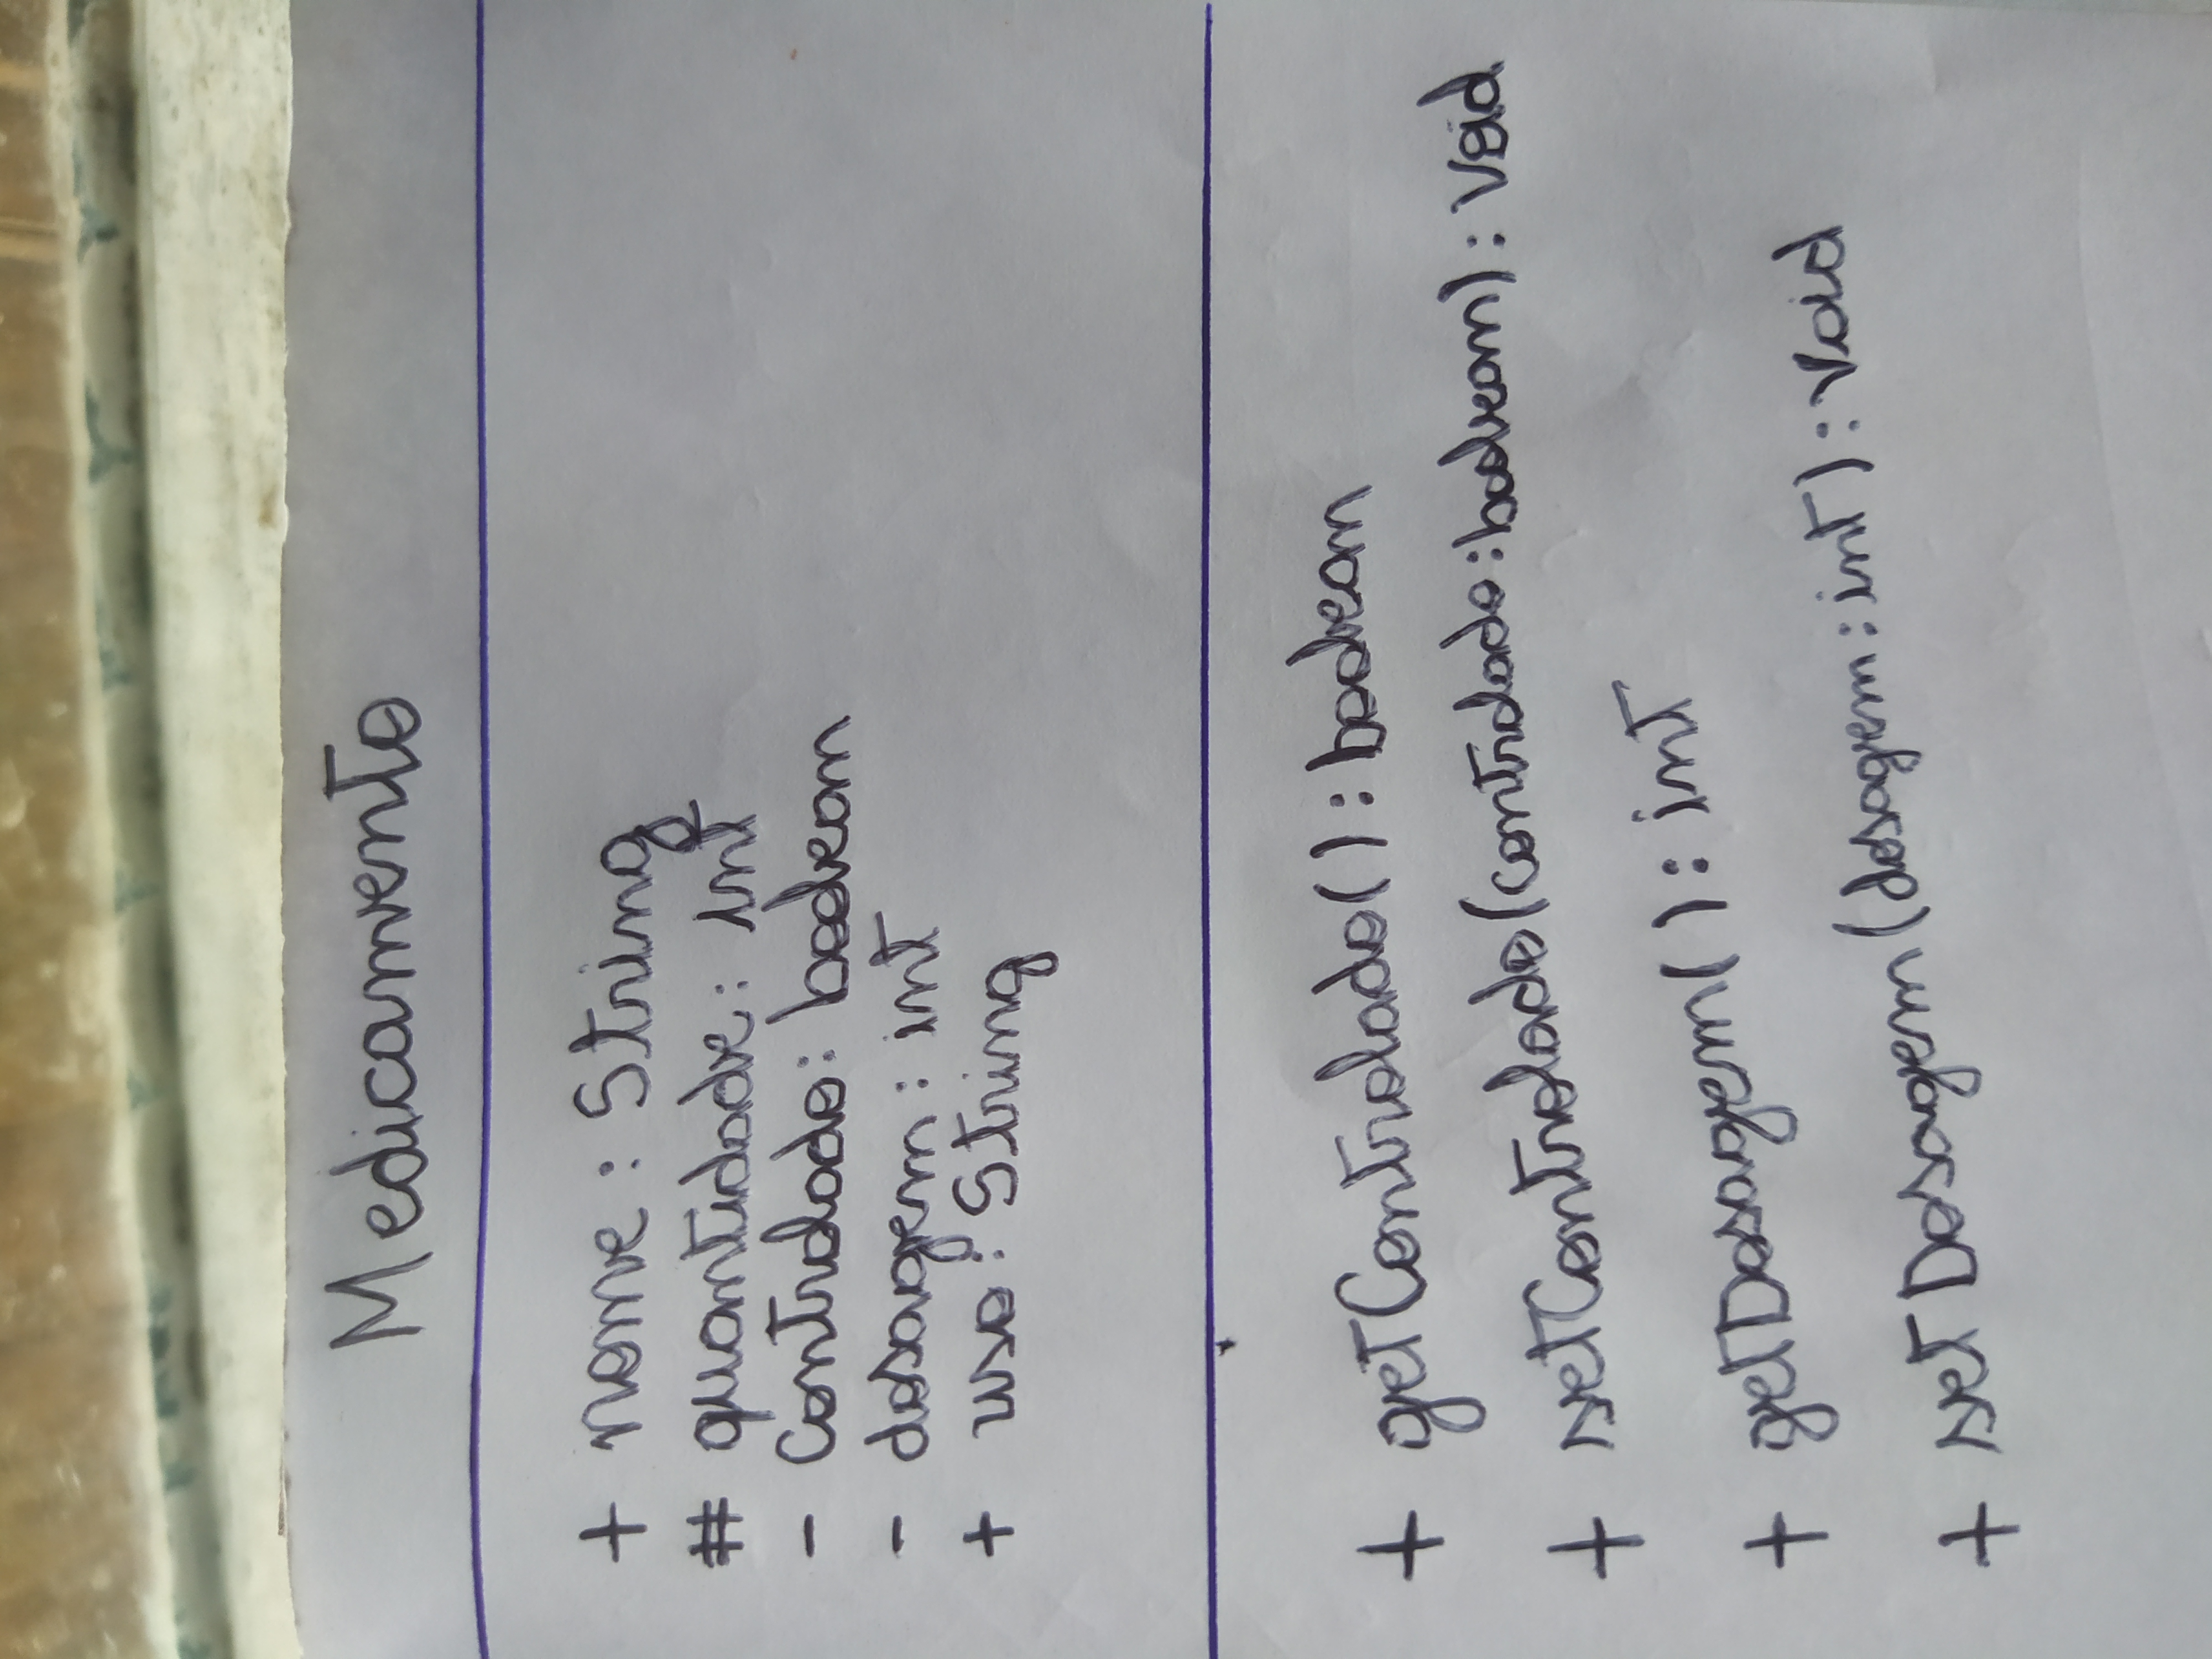 Medicamento
+ nome : String
# quantidade : int
- Controlado : boolean
- dosagem : int
+ uso : String
+ getControlado() : boolean
+ setControlado(controlado : boolean) : Void
+ getDosagem() : int
+ setDosagem(dosagem : int) : Void